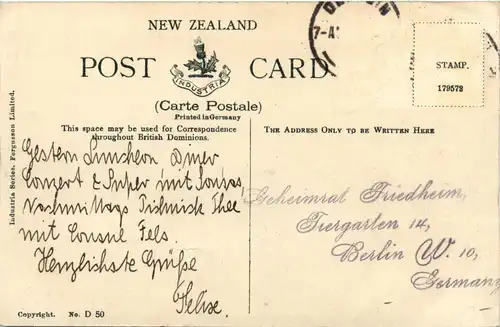 NEW ZEALAND
POST CARD
INDUSTRIA
(Carte Postale)
Printed in Germany
This space may be used for Correspondence
throughout British Dominions.
THE ADDRESS ONLY TO BE WRITTEN HERE
STAMP.
179572
7-A
Industria Series. Fergusson Limited.
Gestern Luncheon Diner
Conzert & Super mit Sousas
Nachmittags Thee
mit Consul Fels.
Herzlichste Grüße
Felix.
Geheimrat Friedheim,
Tiergarten 14,
Berlin W. 10,
Germany
Copyright. No. D 50